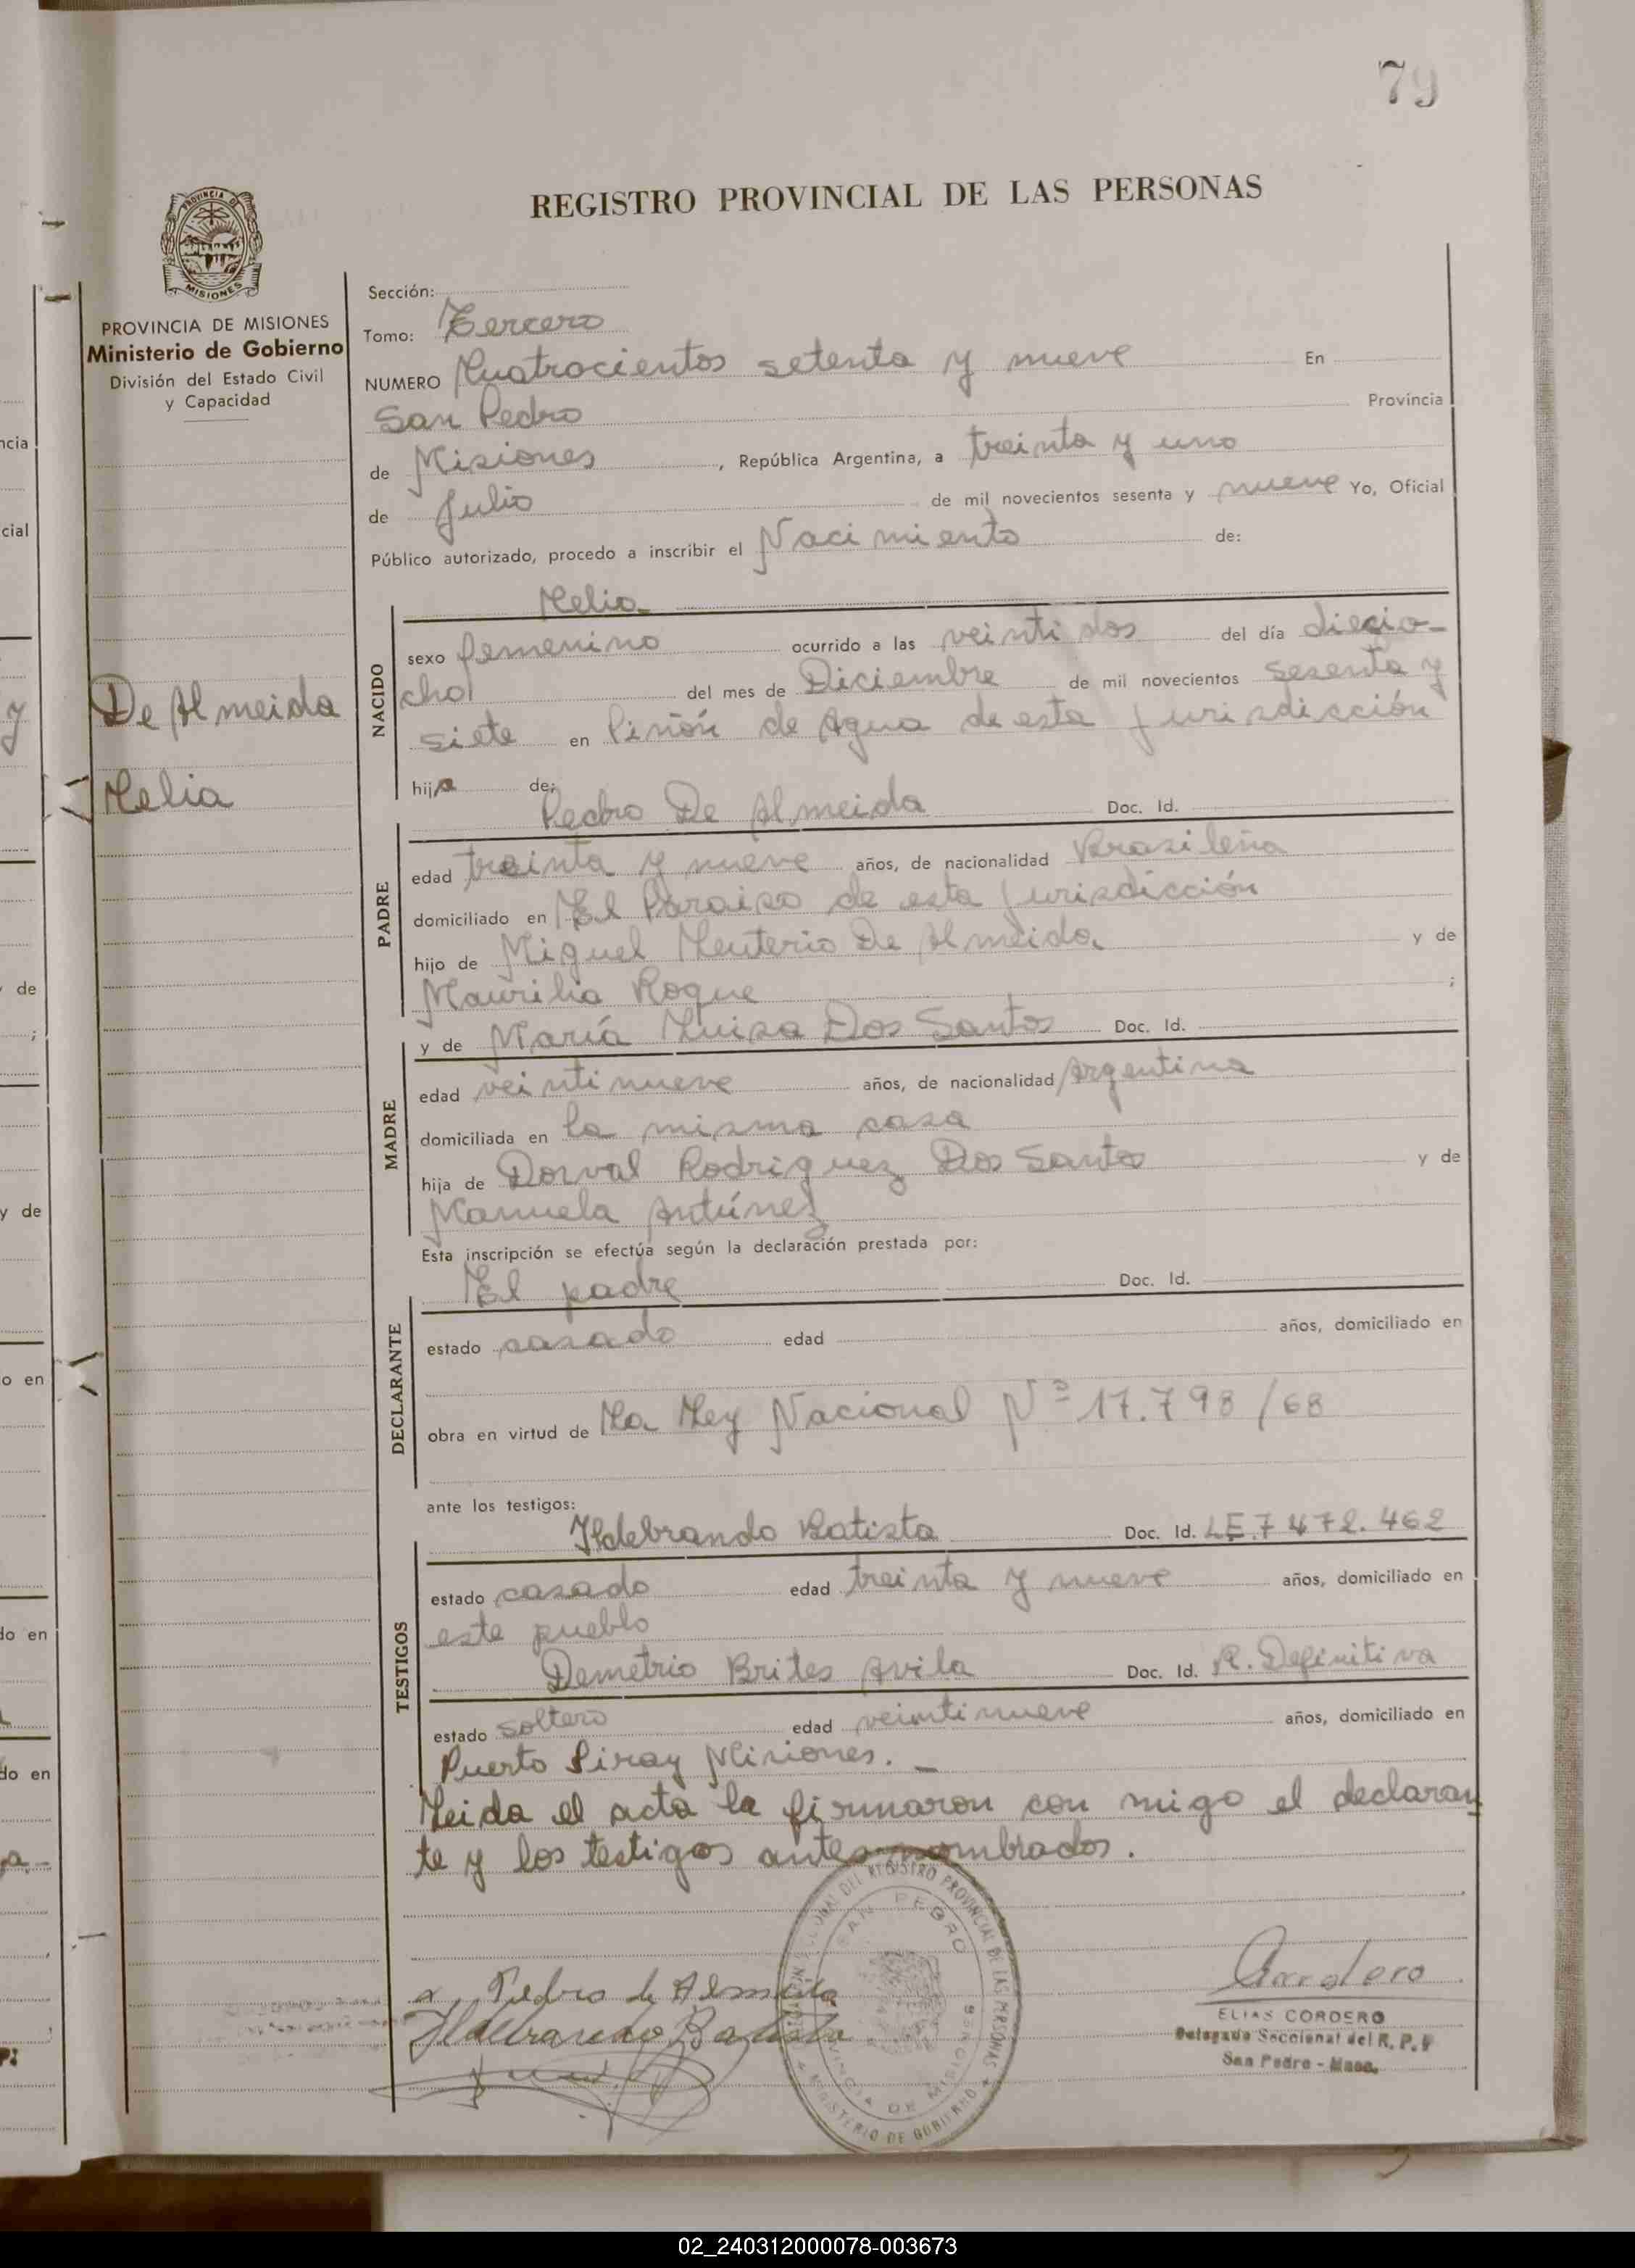 79
REGISTRO PROVINCIAL DE LAS PERSONAS
PROVINCIA DE MISIONES
Ministerio de Gobierno
División del Estado Civil
y Capacidad
De Almeida
Celia
Sección:
Tomo: Tercero
NUMERO Cuatrocientos setenta y nueve En
San Pedro Provincia
de Misiones, República Argentina, a treinta y uno
de Julio de mil novecientos sesenta y nueve Yo, Oficial
Público autorizado, procedo a inscribir el Nacimiento de:
Celia
NACIDO
sexo femenino ocurrido a las veinti dos del día diecio-
cho del mes de Diciembre de mil novecientos sesenta y
siete en Piñón de Agua de esta jurisdicción
hija de:
Pedro De Almeida Doc. Id.
PADRE
edad treinta y nueve años, de nacionalidad Brasileña
domiciliado en El Paraiso de esta jurisdicción
hijo de Miguel De Almeida y de
Maurilia Roque ;
y de María Luisa Dos Santos Doc. Id.
MADRE
edad veinti nueve años, de nacionalidad Argentina
domiciliada en la misma casa
hija de Dorval Rodriguez Dos Santos y de
Manuela Antúnez
Esta inscripción se efectúa según la declaración prestada por:
El padre Doc. Id.
DECLARANTE
estado casado edad años, domiciliado en
obra en virtud de La Ley Nacional Nº 17.798/68
ante los testigos:
Ildebrando Batista Doc. Id. LE.7472.462
TESTIGOS
estado casado edad treinta y nueve años, domiciliado en
este pueblo
Demetrio Brites Avila Doc. Id. R. Definitiva
estado soltero edad veinti nueve años, domiciliado en
Puerto Piray Misiones.
Leida el acta la firmaron con migo el declaran
te y los testigos antes nombrados.
x Pedro de Almeida
Ildebrando Batista
ELIAS CORDERO
Delegado Seccional del R. P. P
San Pedro - Mnes.
REGISTRO PROVINCIAL DE LAS PERSONAS
SAN PEDRO
PROVINCIA DE MISIONES
MINISTERIO DE GOBIERNO
02_240312000078-003673